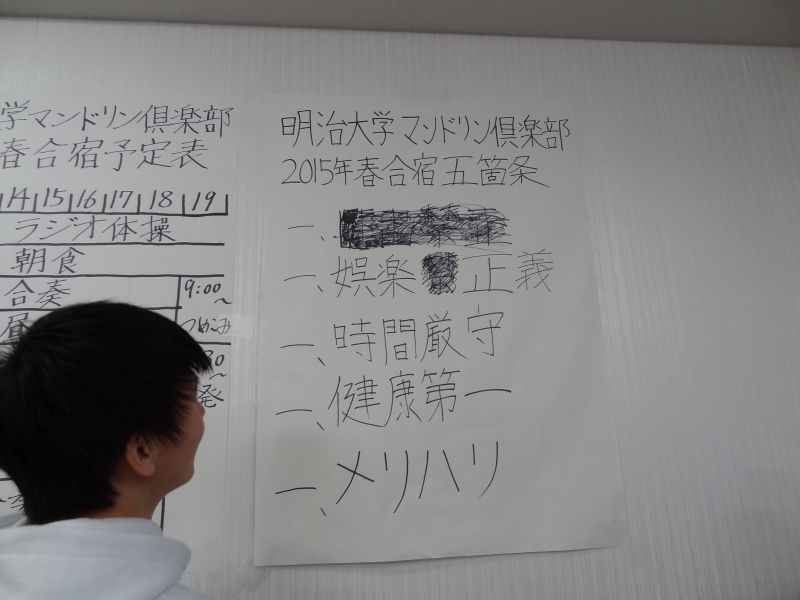 学マンドリン倶楽部
春合宿予定表
14 15 16 17 18 19
ラジオ体操
朝食
合奏
9:00
~
昼
つめこみ
30
~
発
明治大学マンドリン倶楽部
2015年春合宿五箇条
一、
一、娯楽 正義
一、時間厳守
一、健康第一
一、メリハリ